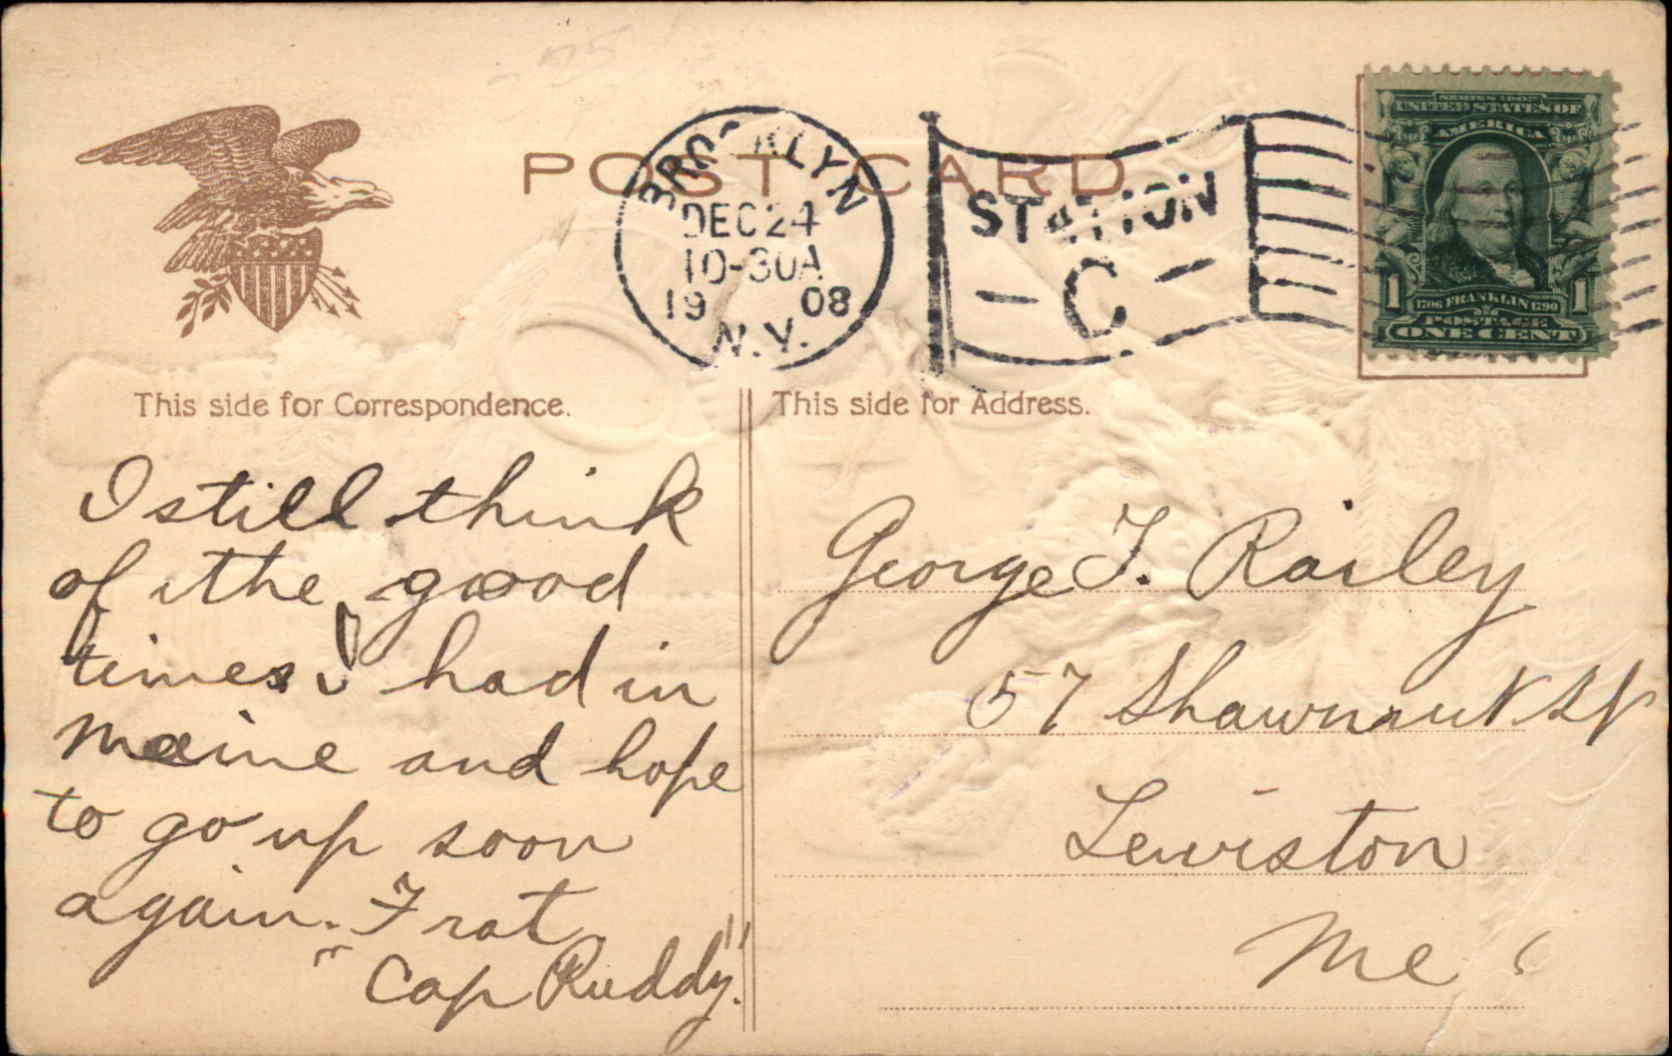 POST CARD
BROOKLYN
DEC 24
10-30A
19 08
N.Y.
STATION
- C -
SERIES 1902
UNITED STATES OF
AMERICA
1 1706 FRANKLIN 1790 1
POSTAGE
ONE CENT
This side for Correspondence.
I still think
of the good
times I had in
Maine and hope
to go up soon
again. Frat
"Cap Ruddy."
This side for Address.
George F. Railey
57 Shawmut St
Lewiston
Me